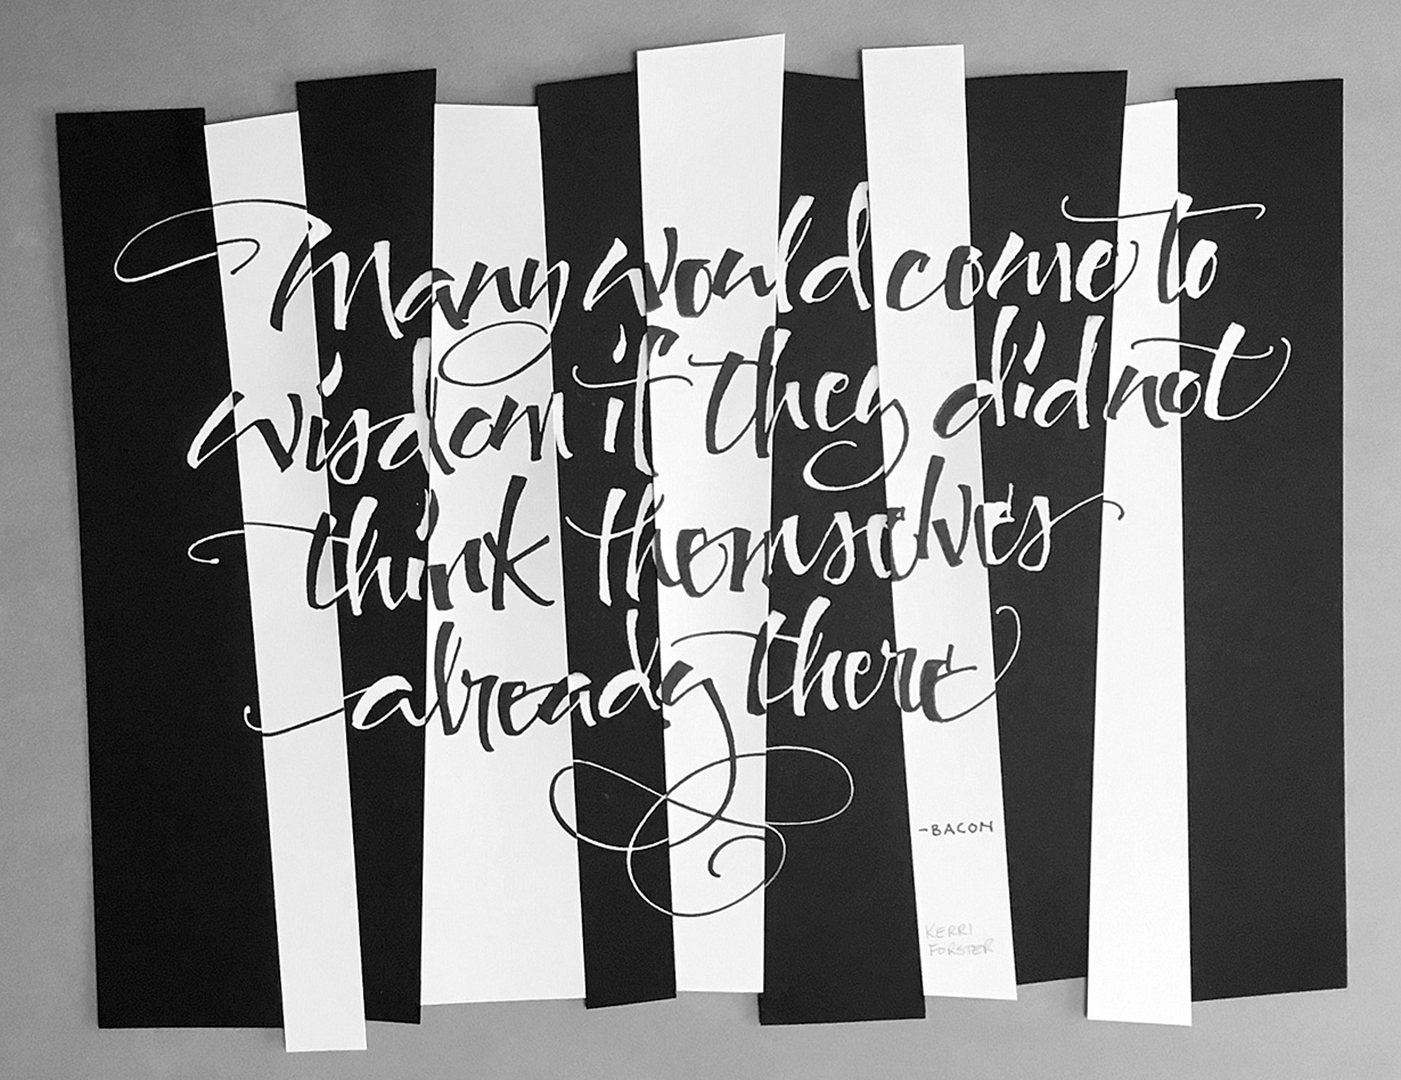 Many would come to
wisdom if they did not
think themselves
already there
-BACON
KERRI
FORSTER